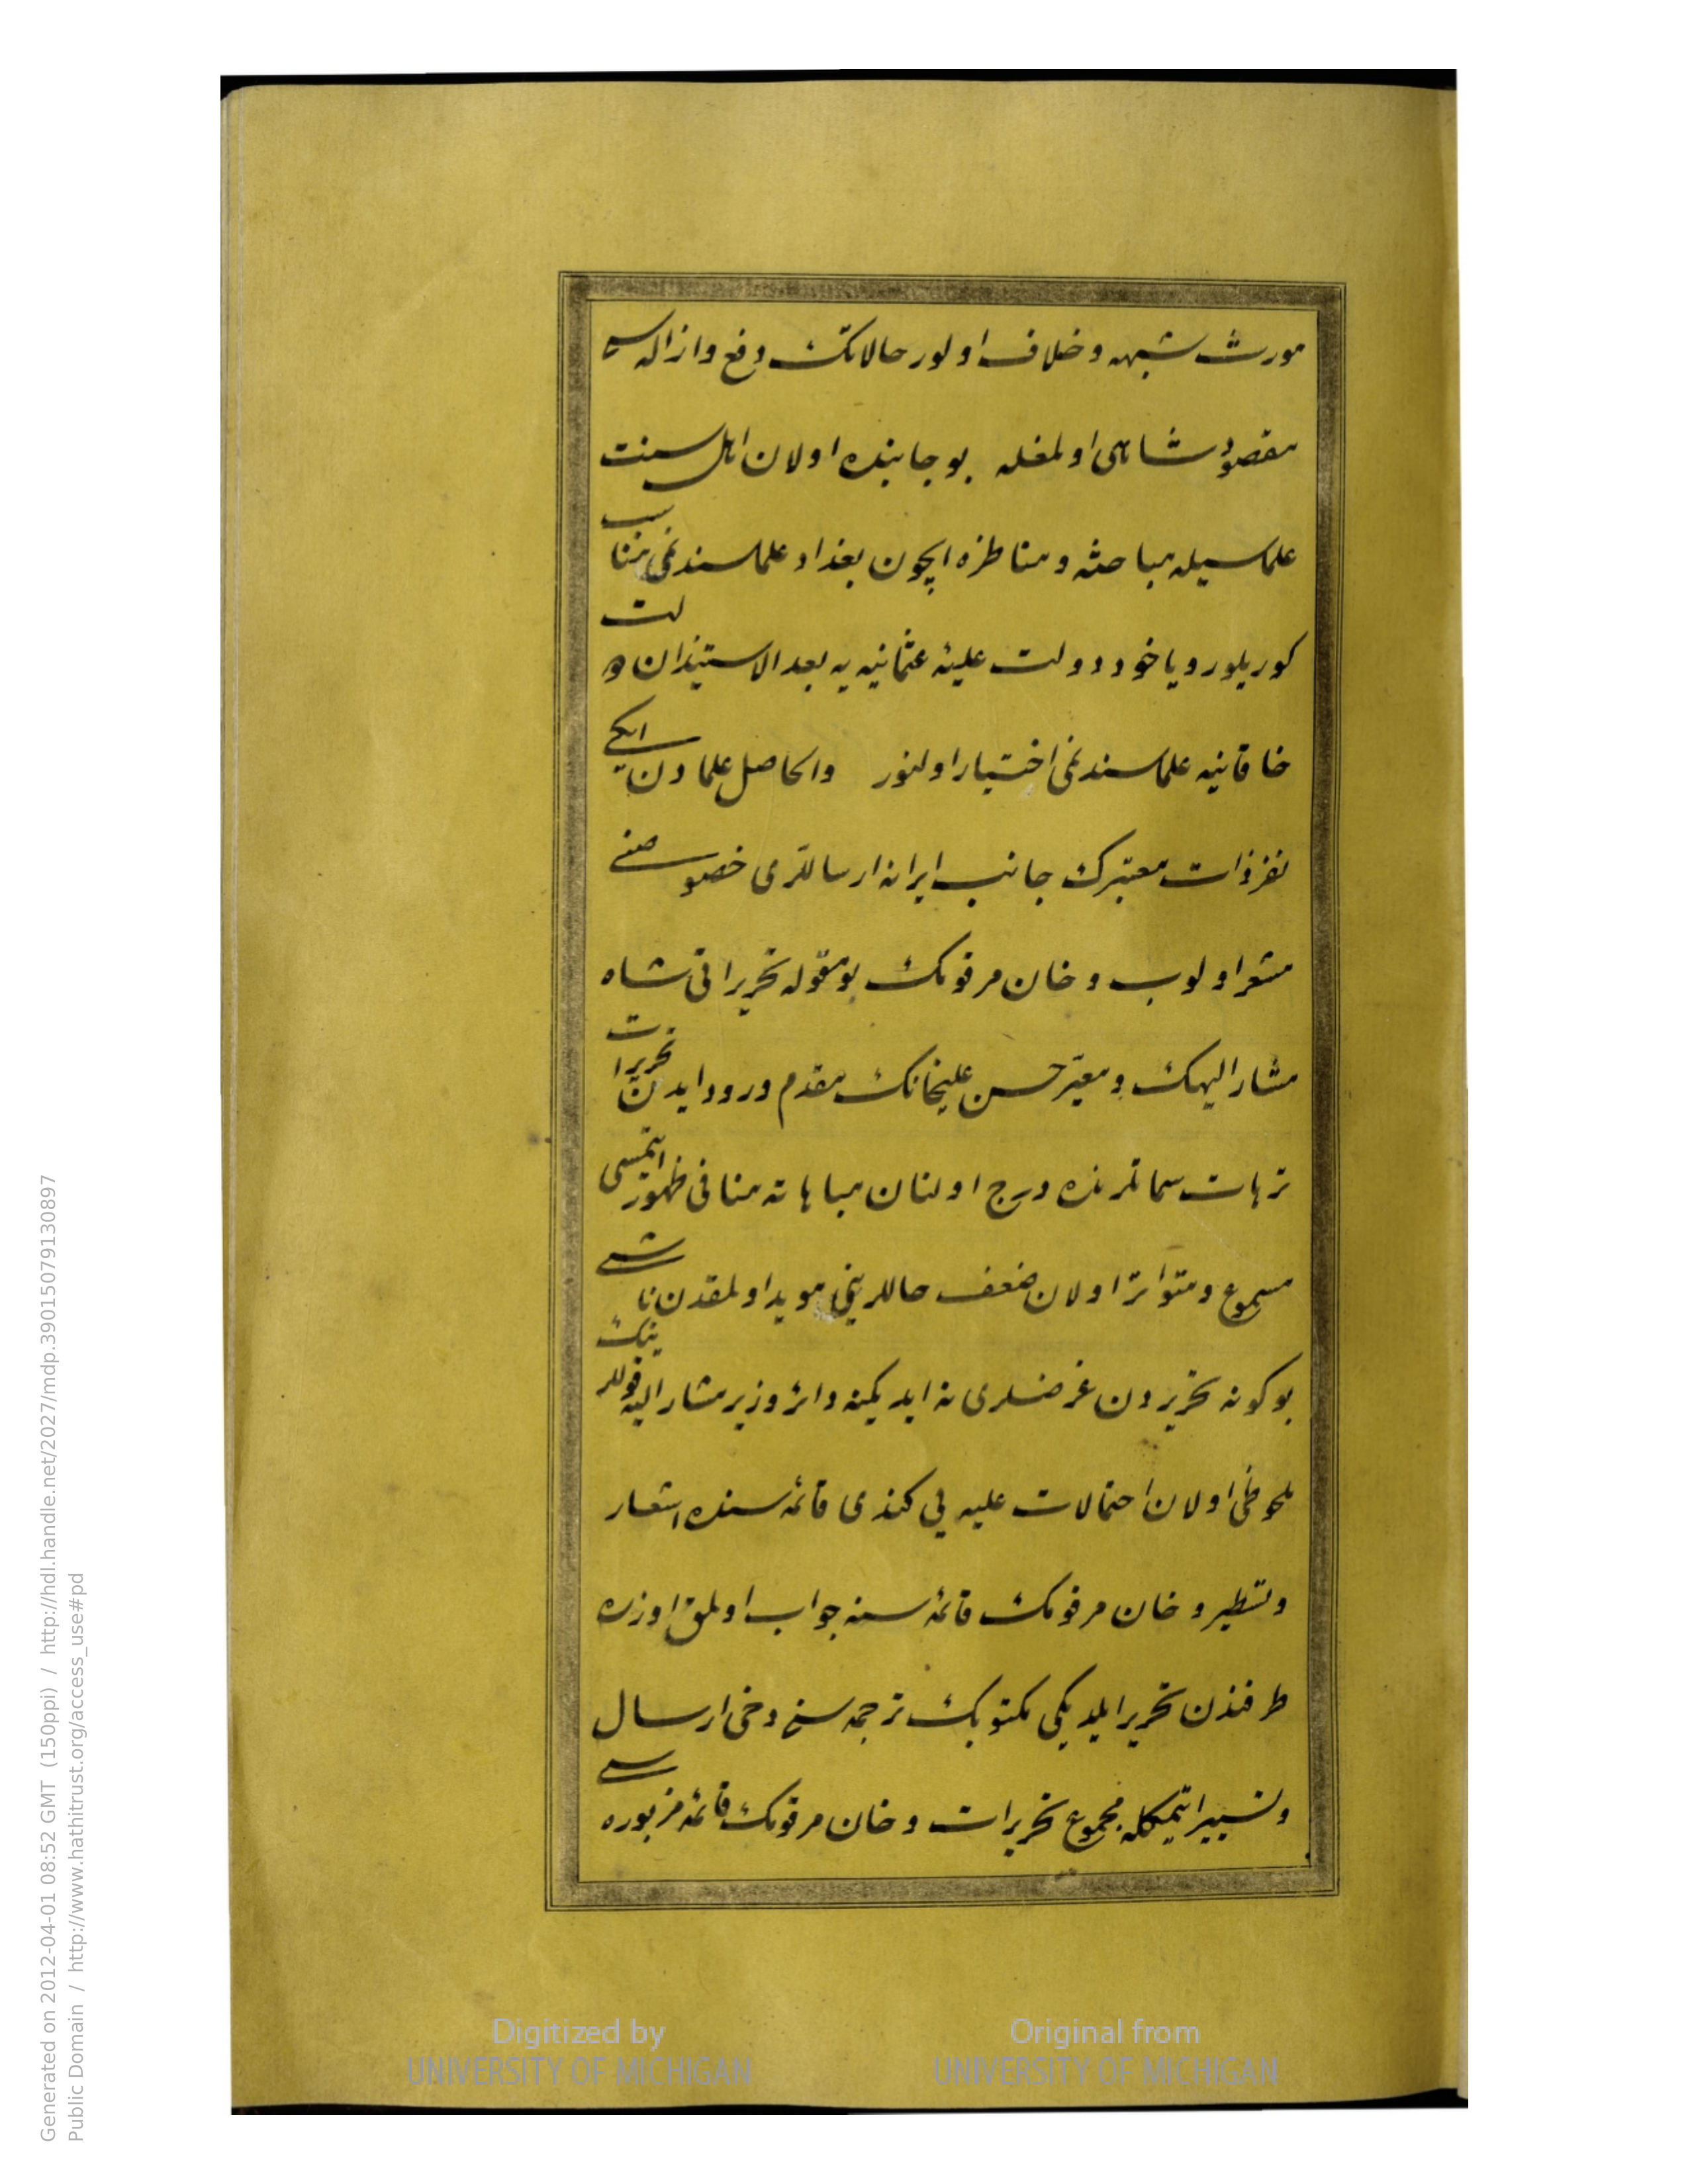 مورث شبهه و خلاف اولور حالاتك دفع وازاله سی
مقصود شاهی اولمغله بو جانبده اولان اهل سنت
علماسیله مباحثه و مناظره ایچون بغداد علماسندنمی مناسب
كوریلور ویاخود دولت علیۀ عثمانیه یه بعد الاستیذان دولت
خاقانیه علماسندنمی اختیار اولنور والحاصل علمادن ایكی
نفر ذات معتبرك جانب ایرانه ارساللری خصوصنی
مشعر اولوب و خان مرقومك بو مقوله تحریراتی شاه
مشار الیهك و معیر حسن علیخانك مقدم ورود ایدن تحریرات
ترهات سماتلرنده درج اولنان مباهاته منافی ظهور ایتمسی
مسموع و متواتر اولان ضعف حاللرینی موید اولمقدن ناشی
بو كونه تحریردن غرضلری نه ایدیكنه دائر وزیر مشار الیه قوللرینك
ملحوظی اولان احتمالات علیه یی كندی قائمه سنده اشعار
وتسطیر و خان مرقومك قائمه سنه جواب اولمق اوزره
طرفندن تحریر ایلدیكی مكتوبك ترجمه سنی دخی ارسال
وتسییر ایتمكله مجموع تحریرات و خان مرقومك قائمۀ مزبوره سی
Generated on 2012-04-01 08:52 GMT (150ppi) / http://hdl.handle.net/2027/mdp.39015079130897
Public Domain / http://www.hathitrust.org/access_use#pd
Digitized by
UNIVERSITY OF MICHIGAN
Original from
UNIVERSITY OF MICHIGAN